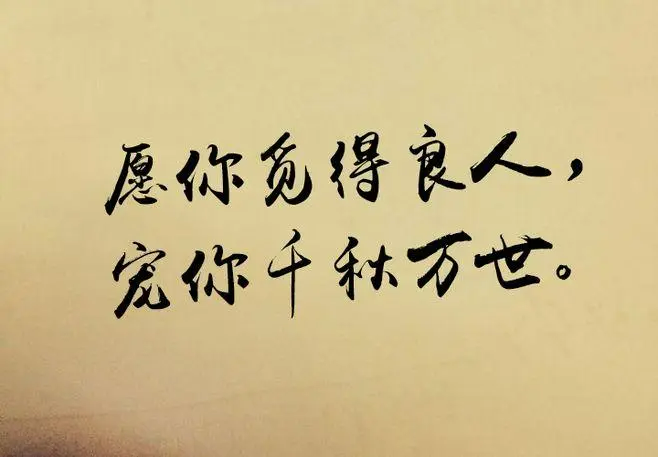 愿你觅得良人，
宠你千秋万世。